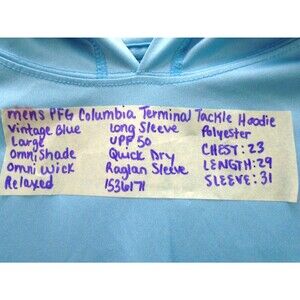 mens PFG Columbia Terminal Tackle Hoodie
Vintage Blue Long Sleeve Polyester
Large UPF 50 CHEST: 23
Omni Shade Quick Dry LENGTH: 29
Omni Wick Raglan Sleeve SLEEVE: 31
Relaxed 1536171